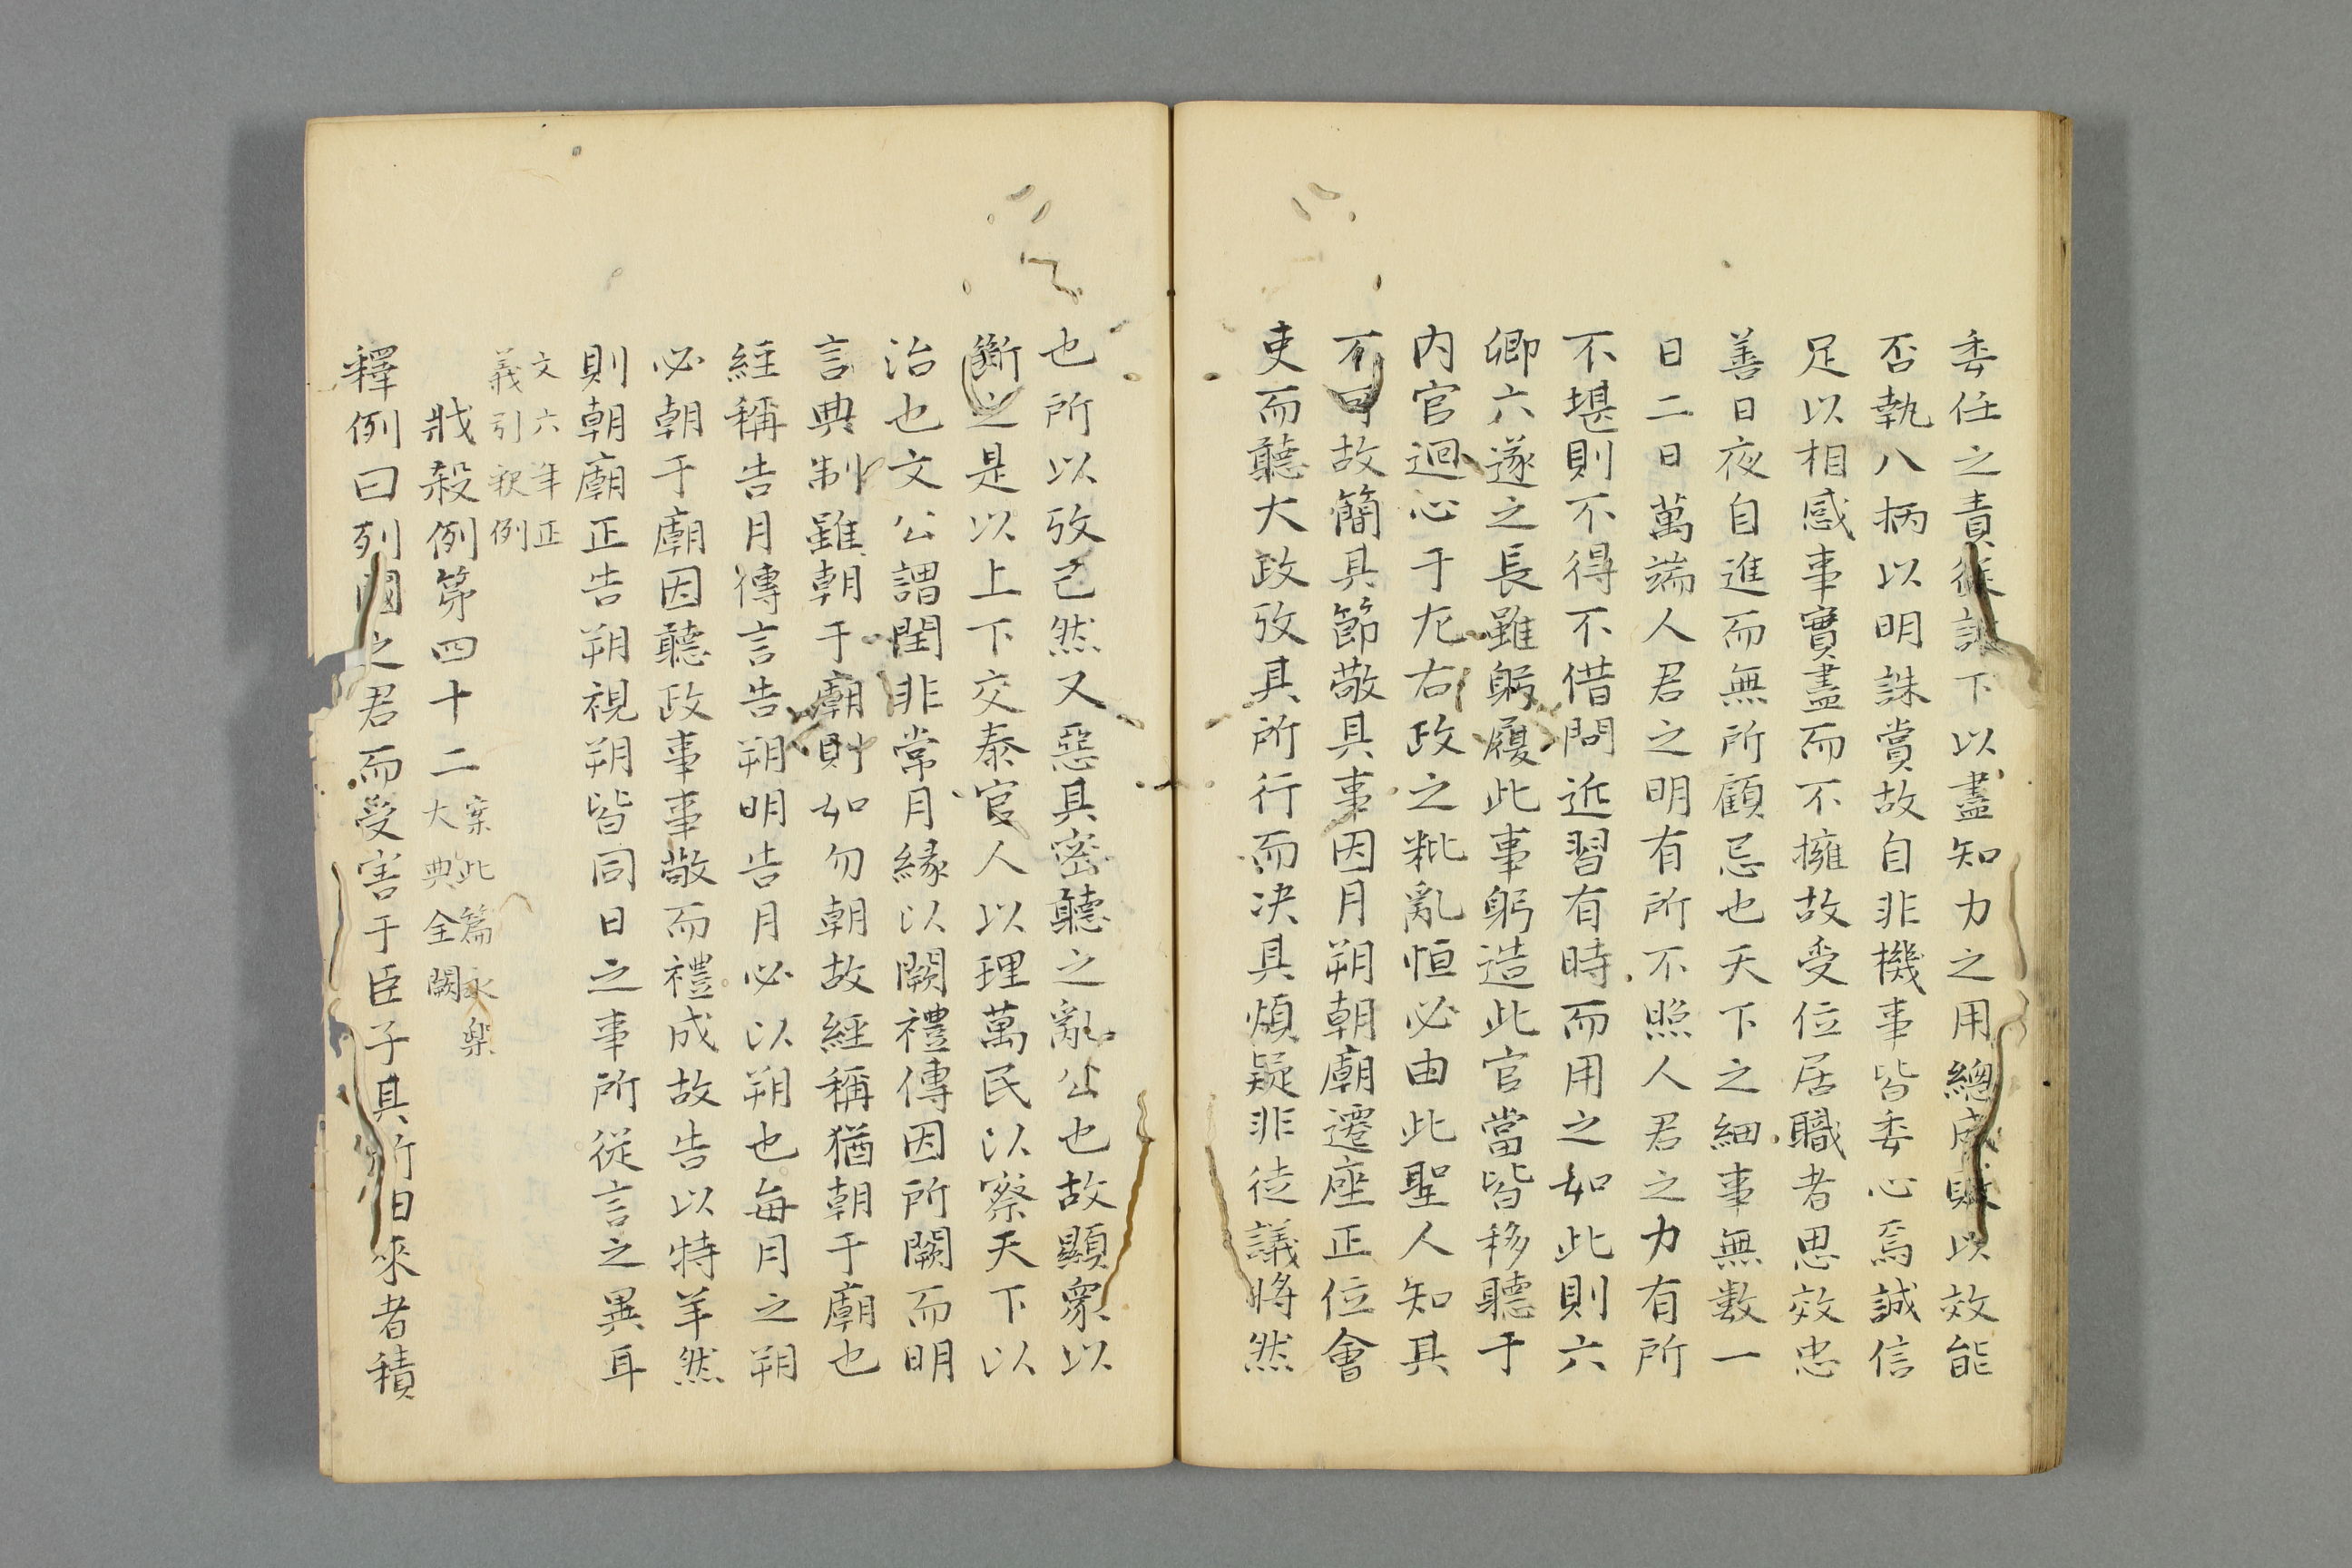 委任之責縱諸下以盡知力之用總成敗以效能
否執八柄以明誅賞故自非機事皆委心焉誠信
足以相感事實盡而不擁故受位居職者思效忠
善日夜自進而無所顧忌也天下之細事無数一
日二日萬端人君之明有所不照人君之力有所
不堪則不得不借問近習有時而用之如此則六
卿六遂之長雖躬履此事躬造此官當皆移聽于
内官迴心于左右政之粃亂恒必由此聖人知其
不可故簡其節敬其事因月朔朝廟遷座正位會
吏而聽大政攷其所行而决其煩疑非徒議將然
也所以攷己然又惡其密聽之亂公也故顯衆以
斷之是以上下交泰官人以理萬民以察天下以
治也文公謂閏非常月緣以闕禮傳因所闕而明
言典制雖朝于廟則如勿朝故經稱猶朝于廟也
經稱告月傳言告朔明告月必以朔也每月之朔
必朝于廟因聽政事事敬而禮成故告以特羊然
則朝廟正告朔視朔皆同日之事所從言之異耳
文六年正
義引釈例
戕殺例第四十二
案此篇永楽
大典全闕
釋例曰列國之君而受害于臣子其所由來者積